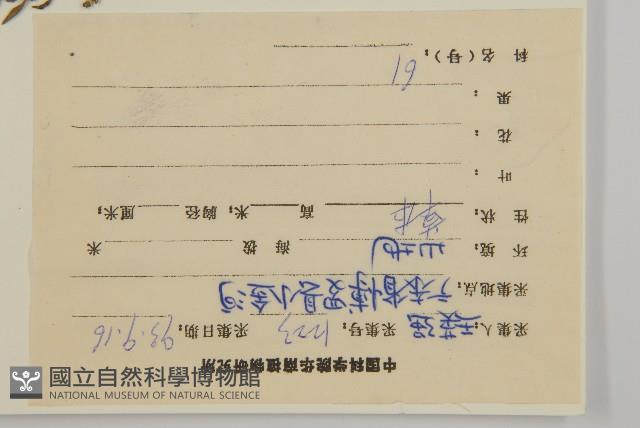 中国科学院华南植物研究所
采集人: 王英强 采集号: 1223 采集日期: 93.9.16
采集地点: 广东省博罗县小金河
环境: 山地 海拔 米
性状: 草本 高 米; 胸径 厘米;
叶:
花:
果:
科名(号): 61
國立自然科學博物館
NATIONAL MUSEUM OF NATURAL SCIENCE